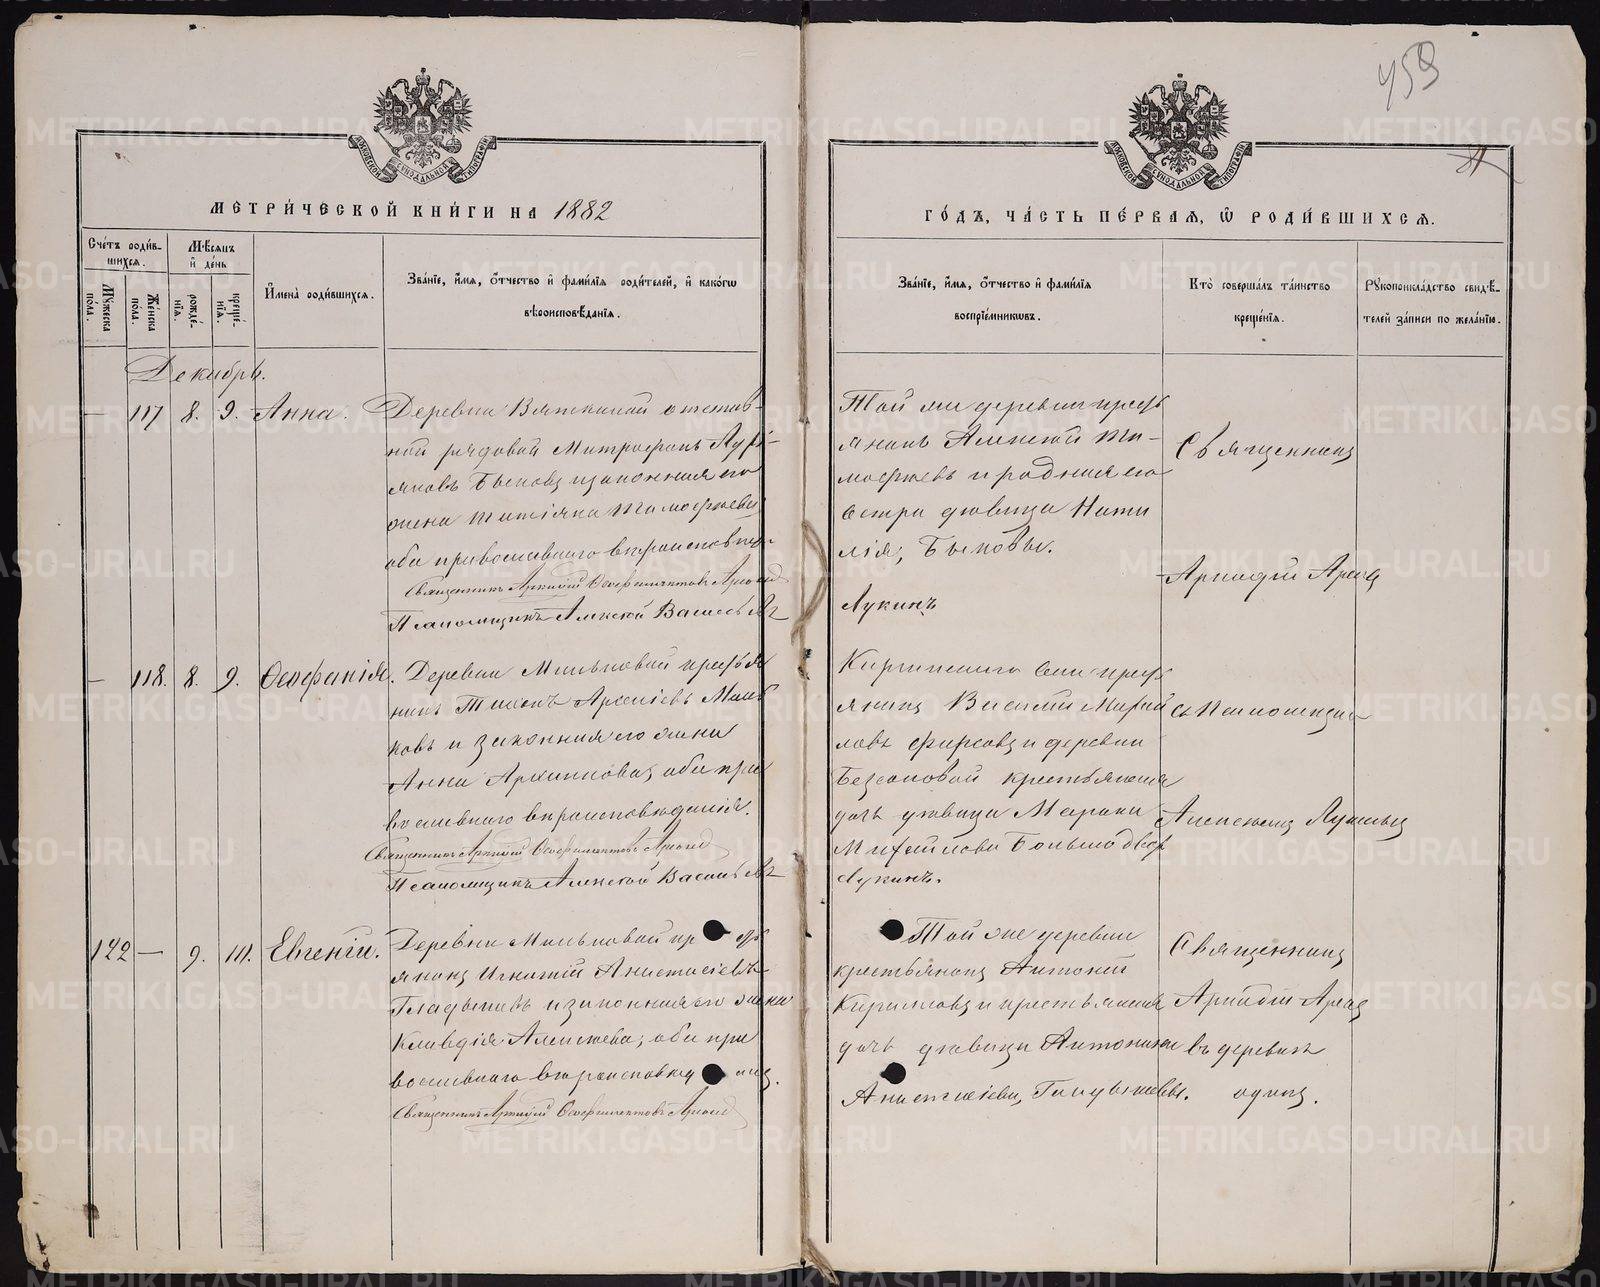 459
МЕТРИ́ЧЕСКОЙ КНИ́ГИ НА 1882
ГО́ДЪ, ЧА́СТЬ ПЕ́РВАЯ, Ѿ РОДИ́ВШИХСѦ.
Сче́тъ роди́в-
шихсѧ.
Мѣ́сяцъ
и̂ де́нь
Му́жеска
пола.
Же́нска
пола.
рожде́-
нїѧ.
креще́-
нїѧ.
И̂мена̀ роди́вшихсѧ.
Зва́нїе, и̂мѧ, о̂тчество и̂ фами́лїѧ роди́телей, и̂ како́гѡ
вѣроисповѣ́данїѧ.
Зва́нїе, и̂мѧ, о̂тчество и̂ фами́лїѧ
воспрїе́мникѡвъ.
Кто̀ соверша́лъ та́инство
креще́нїѧ.
Рꙋкоприкла́дство свидѣ́-
телей за́писи по жела́нїю.
Декабрь.
— 117 8. 9. Анна.
Деревни Вяткиной отстав-
ной рядовой Митрофанъ Лукі-
яновъ Быковъ и законная его
жена Татіяна Тимофеева
оба православнаго вѣроисповѣд.
Священникъ Аркадій Ѳеофилактовъ
Псаломщикъ Алексѣй Васильевъ
Той же деревни крест
янинъ Алексѣй Ти-
мофеевъ и родная его
сестра дѣвица Ната
лія, Быковы.
Лукинъ
Священникъ
Аркадій
— 118. 8. 9. Ѳеофанія.
Деревни Мыльковой крестья
нинъ Тихонъ Арсеніевъ Мыль
ковъ и законная его жена
Анна Архипова, оба пра
вославнаго вѣроисповѣданія.
Священникъ Аркадій Ѳеофилактовъ
Псаломщикъ Алексѣй Васильевъ
села крест
янинъ Василій
ловъ Фирсовъ и деревни
Безсоновой крестьянская
дочь дѣвица
Михайлова Большедвор
Лукинъ.
съ Псаломщи
Алексѣемъ
122 — 9. 11. Евгеній.
Деревни Мыльковой кр сть
янинъ Игнатій Анастасіевъ
Гладышевъ и законная его жена
Клавдія Алексѣева, оба пра
вославнаго вѣроисповѣд нія.
Священникъ Аркадій Ѳеофилактовъ
Той же деревни
крестьянинъ Антоній
Кириловъ и крестьянская
дочь дѣвица Антонина
Анастасіева, Гладышевы.
Священникъ
Аркадій
въ деревнѣ
одинъ.
METRIKI.GASO-URAL.RU